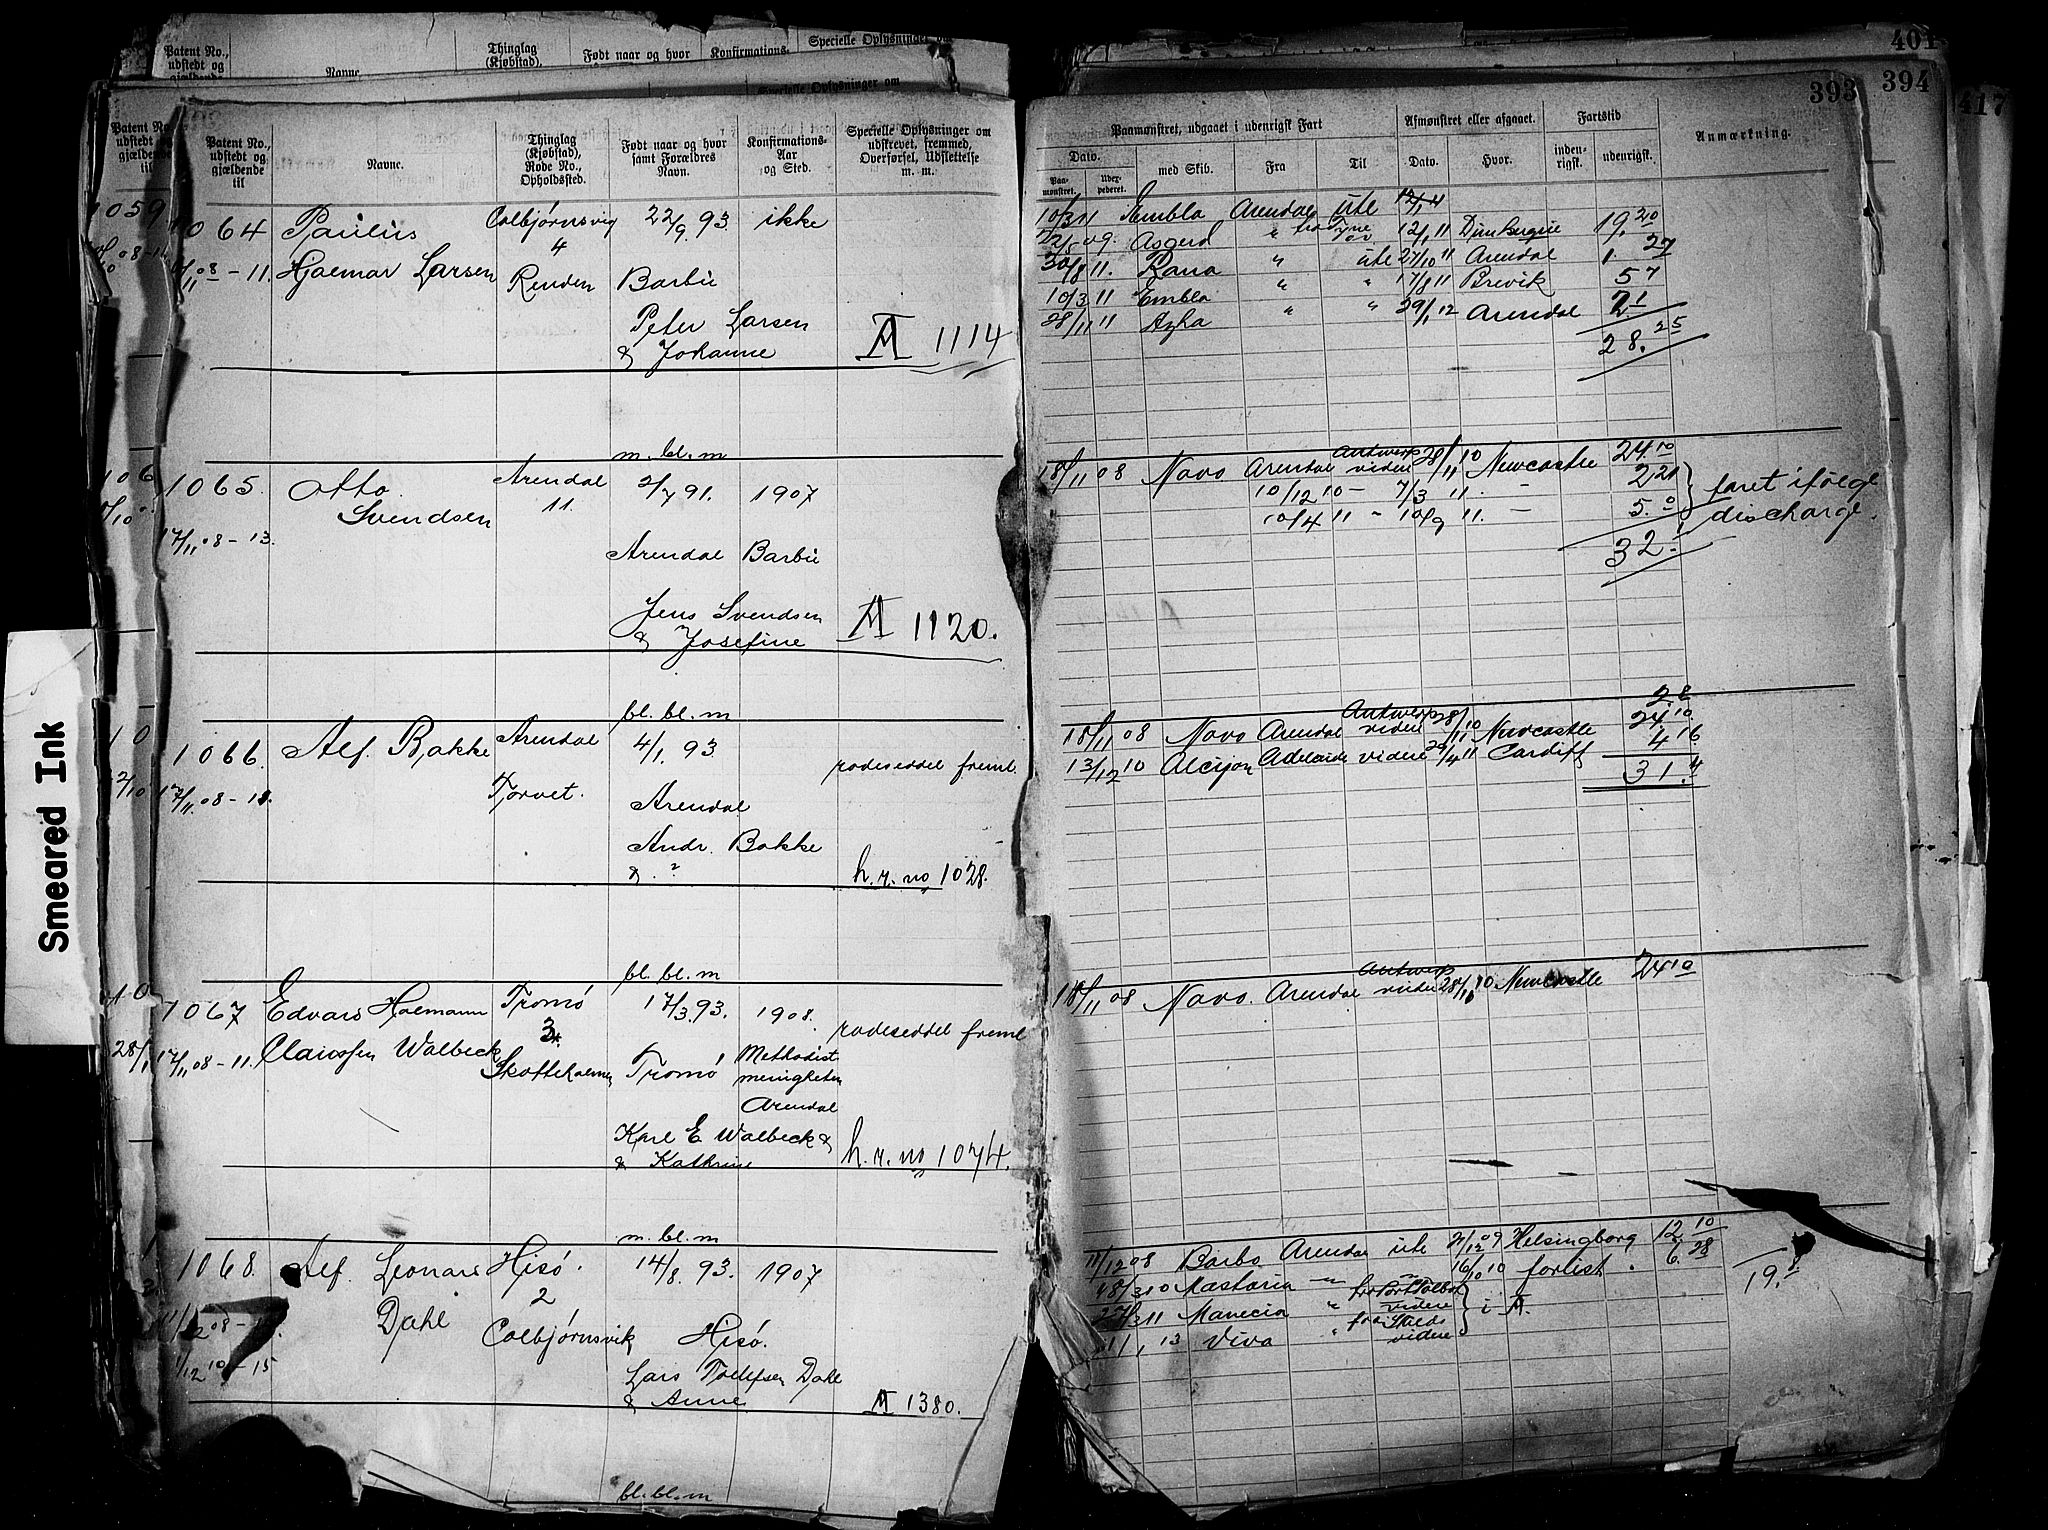 Patent No., udstedt og gjældende til
Navne.
Thinglag (Kjøbstad),
Født naar og hvor
Konfirmations-
Specielle Oplysninger
Specielle Oplysninger om
401
393
394
417
Patent No., udstedt og gjældende til
Patent No., udstedt og gjældende til
Navne.
Thinglag (Kjøbstad), Rode No., Opholdssted.
Født naar og hvor samt Forældres Navn.
Konfirmations-Aar og Sted.
Specielle Oplysninger om udskrevet, fremmed, Overførsel, Udslettelse m. m.
Paamønstret, udgaaet i udenrigsk Fart
Afmønstret eller afgaaet.
Fartstid
Anmærkning.
Dato.
med Skib.
Fra
Til
Dato.
Hvor.
inden-rigsk.
udenrigsk.
Paa-mønstret.
Uder-pederet.
1059
1064 Paulus Colbjørnsvig 22/9 93. ikke
4
/11 08-11. Hjalmar Larsen Renden Barbu
Peter Larsen
& Johanne
A 1114
10/3 11 Embla Arendal ute
Asgerd " 12/1 11 19.20
30/8 11. Rana " ute 27/10 11 Arendal 1. 27
10/3 11 Embla " " 17/8 11 Brevik 5 7
28/11 11 Azha " " 29/1 12 Arendal 2.1
28.25
m. bl. m
1065. Otto Arendal 2/7 91. 1907
Svendsen 11.
17/11 08-13.
Arendal Barbu
Jens Svendsen
& Josefine
A 1120.
18/11 08 Navo Arendal Antwerp videre 28/11 10 Newcastle 24.10
10/12 10 - 7/3 11. - 2.21
10/4 11 - 10/9 11. - 5.0
faret ifølge discharge.
32.1
bl. bl. m
1066. Alf. Bakke Arendal 4/1. 93
rodeseddel freml.
17/11 08-11. Torvet.
Arendal
Andr. Bakke
& . "
h. r. no 1028.
2.8
18/11 08 Navo Arendal Antwerp videre 28/11 10 Newcastle 24.10
13/12 10 Alcyon Adelaide videre 29/4 11 Cardiff 4 16
31.4
bl. bl. m
1067 Edvard Halmann Tromø 17/3. 93. 1908.
rodeseddel freml
17/11 08-11. Claussen Walbeck Skotteholmen Tromø Methodist
menigheten
Arendal
Karl E Walbeck &
& Kathrine
h. r. no 1074.
18/11 08 Navo. Arendal Antwerp videre 28/11 10 Newcastle 24 10
m. bl. m
1068. Alf. Leonard Hisø. 14/8. 93. 1907
Dahl 2
Colbjørnsvik Hisø.
1/12 10-15
Lars Dahl
& Anne
A 1380.
11/12 08 Barbo Arendal ute 21/12 09 Helsingborg 12 10
18/3 10 Mastoria 16/10 10 forlist. 6. 28
fra Port Talbot
27/3 11 Manecia " videre
i A.
1/1 13 Viva " videre
19.8
bl. bl. m
Smeared Ink